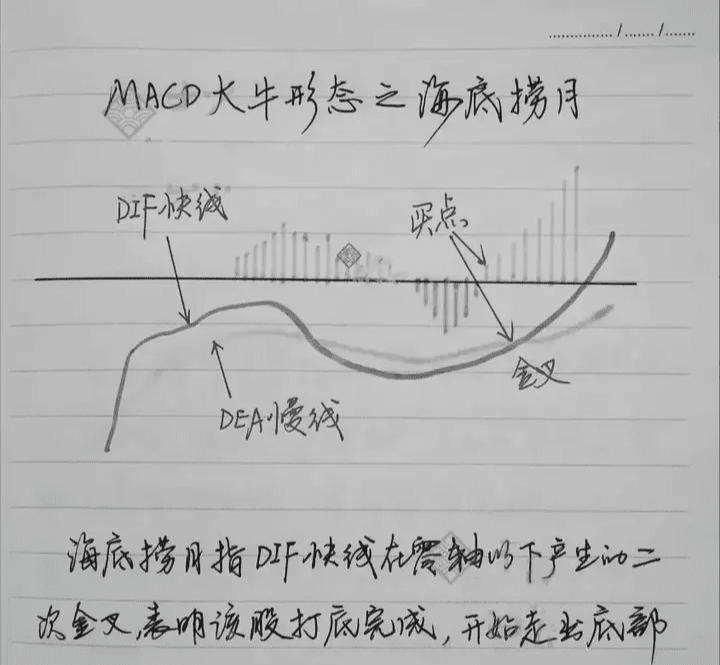 MACD大牛形态之海底捞月
DIF快线
买点
金叉
DEA慢线
海底捞月指DIF快线在零轴以下产生的二
次金叉,表明该股打底完成,开始走出底部